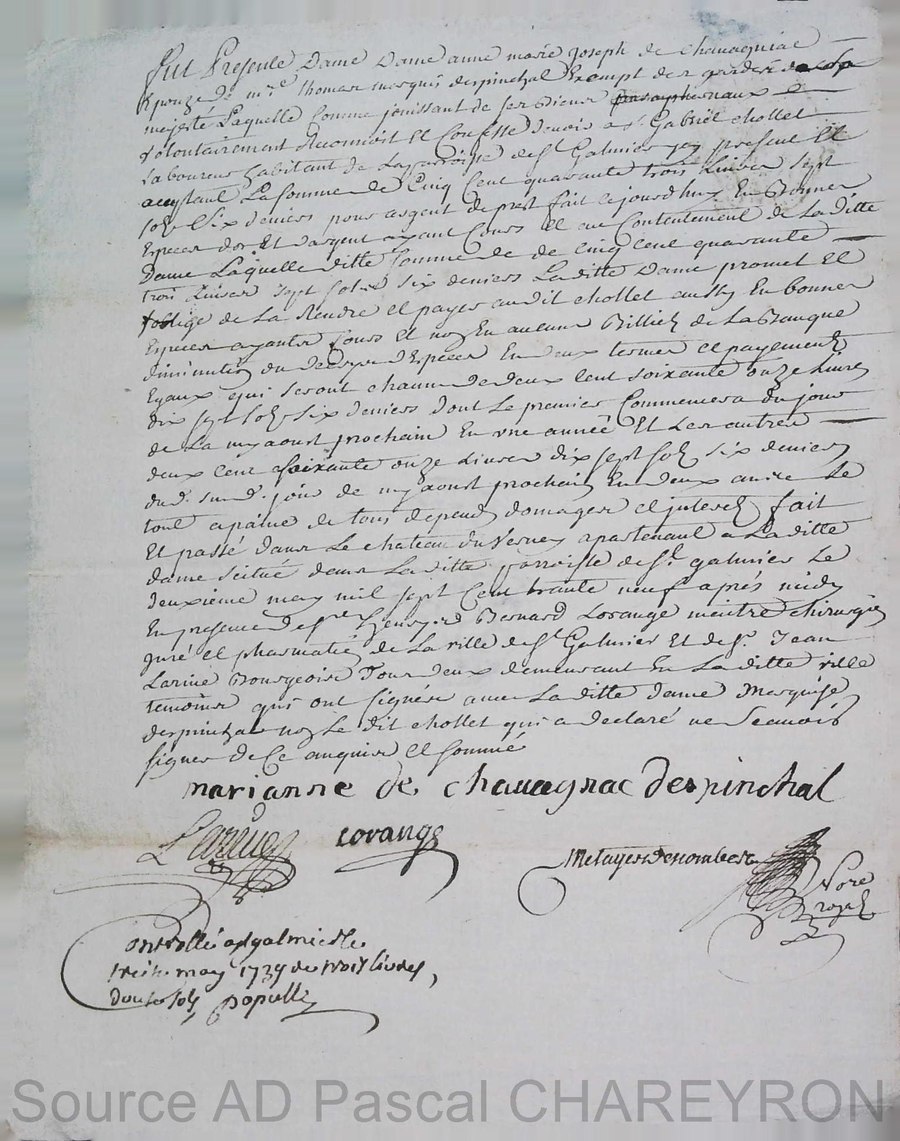 Fut Presente Dame Dame anne marie Joseph de chauagniac
Epouze de mre thomas marquis despinchal Exempt des gardes de Sa
majesté Laquelle comme jouissant de ses Biens paraphernaux
volontairement Reconnoit Et Confesse devoir a sr Gabriël chollet
Laboureur habitant de La parroisse de St Galmier present Et
aceptant La Somme de Cinq Cent quarante trois Liures Sept
sols Six deniers pour argent de prest fait cejourdhuy En Bonnes
Especes dor Et dargent ayant Cours Et au Contentement de La ditte
Dame Laquelle ditte Somme de Cinq Cent quarante
trois Liures Sept Sols six deniers La ditte Dame promet Et
soblige de La Rendre et payer audit chollet aussy En bonnes
Especes ayants Cours et non En aucuns Billiets de La Banque
diminution du decrys dEspeces En deux termes et payements
Egaux qui seront chacun de deux Cent soixante onze Liures
dix sept sols six deniers dont Le premier Commencera du jour
de La my aoust prochain En vne année Et Les autres
deux Cent soixante onze Liures dix sept sols six deniers
dud. jour de my aoust prochain En deux année Le
tout apaine de tous depends domages et interets fait
Et passé dans Le chateau du Verney apartenant a La ditte
dame scitué dans La ditte parroisse de St galmier Le
deuxième may mil sept Cent trante neuf après midy
En presence de sr Bernard Lorange maitre chirurgien
juré et pharmatien de La ville de St Galmier Et de Sr Jean
Larine Bourgeois Tous deux demeurant En La ditte ville
temoins qui ont signés auec La ditte dame Marquise
despinchal non Le dit chollet qui a declaré ne Scauoir
signer de Ce anquis et sommé
marianne de chauagnac despinchal
Larine Lorange
Metayer Nore
royal
Controllé a St galmier le
may 1739 de trois livres
douze sols
Source AD Pascal CHAREYRON